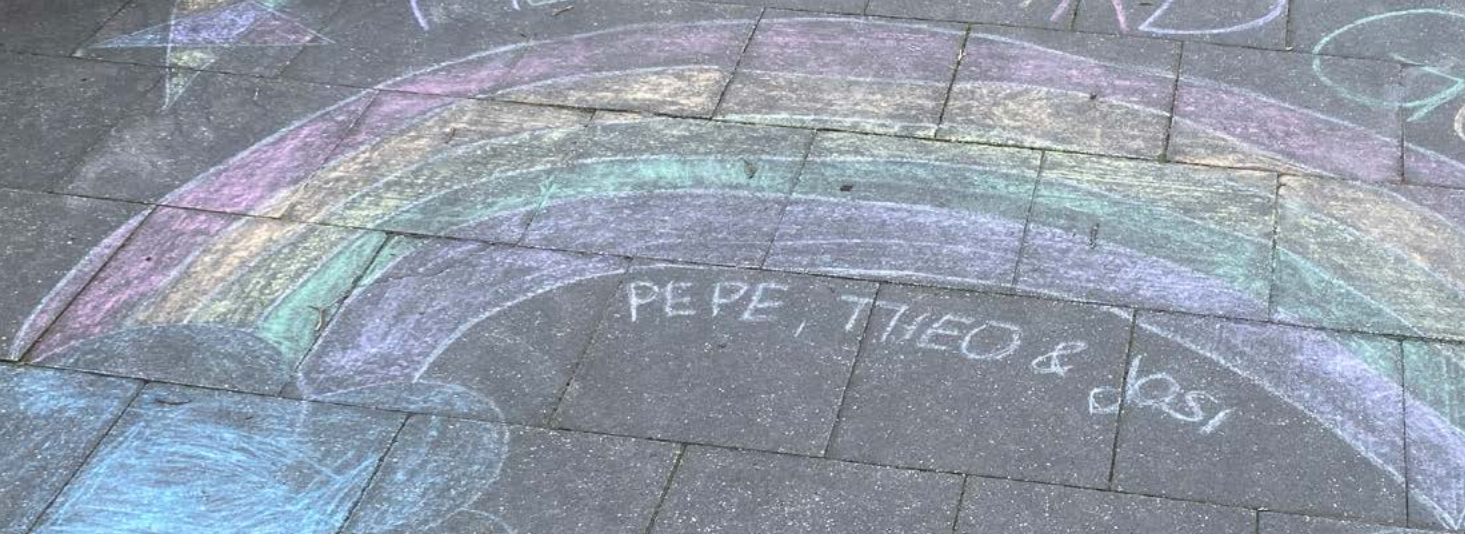 PEPE, THEO & JOSI